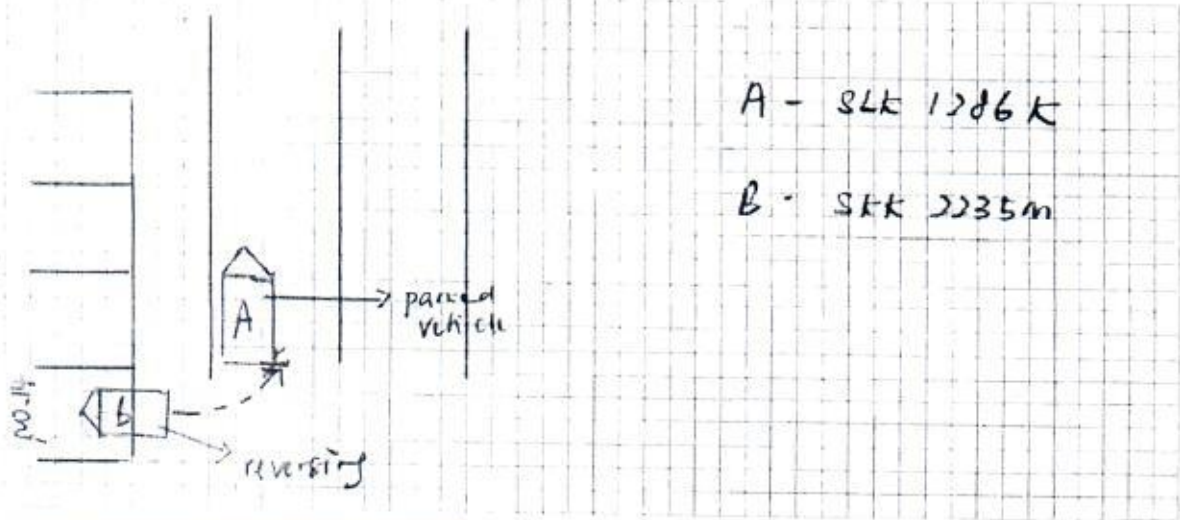 A - SLK 1286K
B - SKK 2235M
A
parked
vehicle
B
reversing